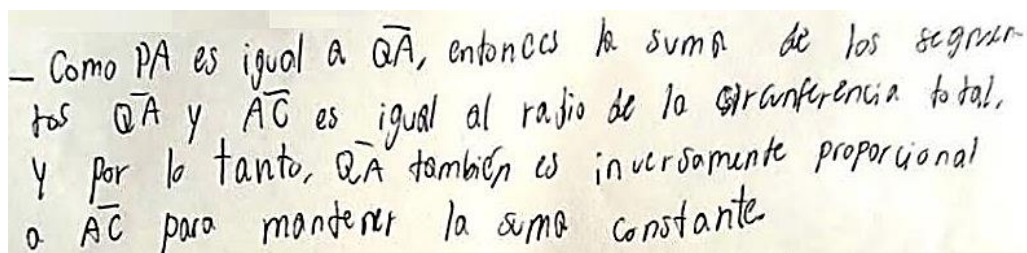 - Como PA es igual a Q̅A̅, entonces la suma de los segmen
tos Q̅A̅ y A̅C̅ es igual al radio de la circunferencia total,
y por lo tanto, Q̅A̅ también es inversamente proporcional
a A̅C̅ para mantener la suma constante